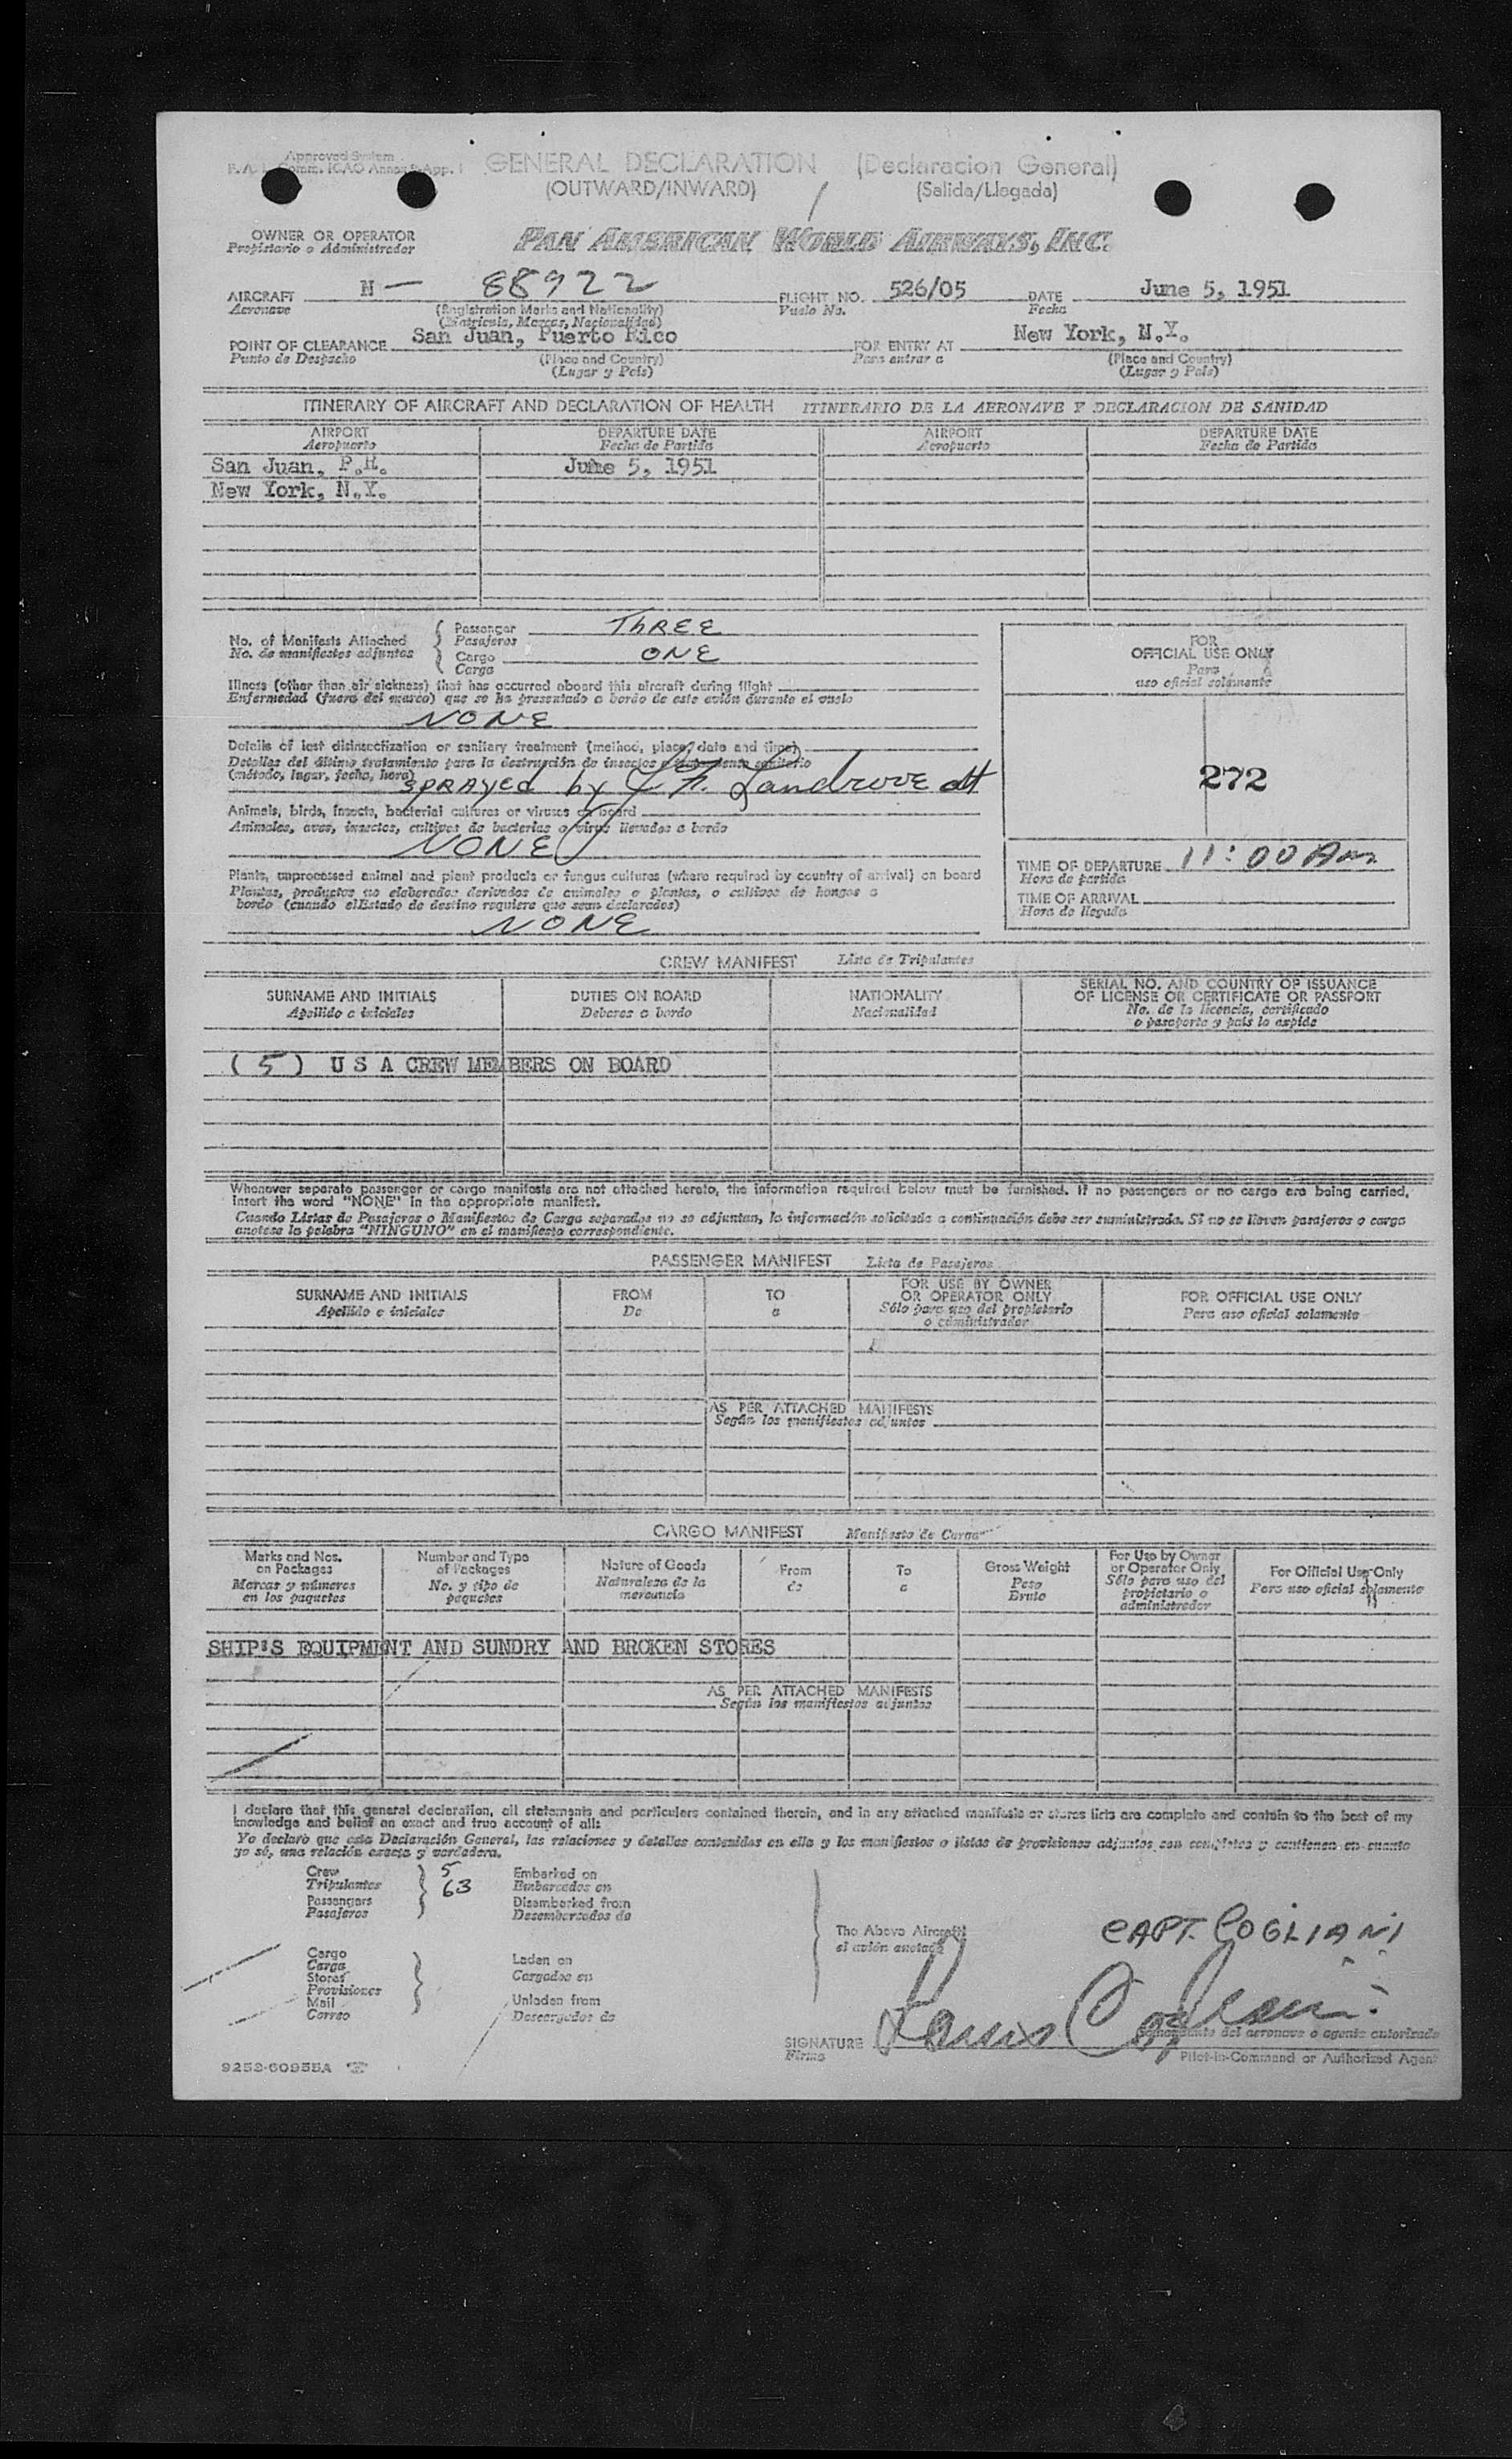 Approved System
Comm. ICAO Annex 9 App. 1
GENERAL DECLARATION (Declaracion General)
(OUTWARD/INWARD) (Salida/Llegada)
OWNER OR OPERATOR PAN AMERICAN WORLD AIRWAYS, INC.
Propietario o Administrador
AIRCRAFT N — 88922 FLIGHT NO. 526/05 DATE June 5, 1951
Aeronave (Registration Marks and Nationality) Vuelo No. Fecha
(Matricula, Marcas, Nacionalidad)
POINT OF CLEARANCE San Juan, Puerto Rico FOR ENTRY AT New York, N.Y.
Punto de Despacho (Place and Country) Para entrar a (Place and Country)
(Lugar y Pais) (Lugar y Pais)
ITINERARY OF AIRCRAFT AND DECLARATION OF HEALTH ITINERARIO DE LA AERONAVE Y DECLARACION DE SANIDAD
AIRPORT DEPARTURE DATE AIRPORT DEPARTURE DATE
Aeropuerto Fecha de Partida Aeropuerto Fecha de Partida
San Juan, P.R. June 5, 1951
New York, N.Y.
No. of Manifests Attached Passenger THREE
No. de manifiestos adjuntos Pasajeros
Cargo ONE
Carga
Illness (other than air sickness) that has occurred aboard this aircraft during flight
Enfermedad (fuera del mareo) que se ha presentado a bordo de este avión durante el vuelo
NONE
Details of last disinsectization or sanitary treatment (method, place, date and time)
Detalles del último tratamiento para la destrucción de insectos o tratamiento sanitario
(método, lugar, fecha, hora)
SPRAYED by J. F. Landrove
Animals, birds, insects, bacterial cultures or viruses on board
Animales, aves, insectos, cultivos de bacterias o virus llevados a bordo
NONE
Plants, unprocessed animal and plant products or fungus cultures (where required by country of arrival) on board
Plantas, productos no elaborados derivados de animales o plantas, o cultivos de hongos a
bordo (cuando elEstado de destino requiere que sean declarados)
NONE
FOR
OFFICIAL USE ONLY
Para
uso oficial solamente
272
TIME OF DEPARTURE 11:00 Am
Hora de partida
TIME OF ARRIVAL
Hora de llegada
CREW MANIFEST Lista de Tripulantes
SURNAME AND INITIALS DUTIES ON BOARD NATIONALITY SERIAL NO. AND COUNTRY OF ISSUANCE
Apellido e iniciales Deberes a bordo Nacionalidad OF LICENSE OR CERTIFICATE OR PASSPORT
No. de la licencia, certificado
o pasaporte y pais lo expide
(5) U S A CREW MEMBERS ON BOARD
Whenever separate passenger or cargo manifests are not attached hereto, the information required below must be furnished. If no passengers or no cargo are being carried,
insert the word "NONE" in the appropriate manifest.
Cuando Listas de Pasajeros o Manifiestos de Carga separados no se adjuntan, la información solicitada a continuación debe ser suministrada. Si no se llevan pasajeros o carga
anotese la palabra "NINGUNO" en el manifiesto correspondiente.
PASSENGER MANIFEST Lista de Pasajeros
SURNAME AND INITIALS FROM TO FOR USE BY OWNER FOR OFFICIAL USE ONLY
Apellido e iniciales De a OR OPERATOR ONLY Para uso oficial solamente
Sólo para uso del propietario
o administrador
AS PER ATTACHED MANIFESTS
Según los manifiestos adjuntos
CARGO MANIFEST Manifiesto de Carga
Marks and Nos. Number and Type Nature of Goods From To Gross Weight For Use by Owner For Official Use Only
on Packages of Packages Naturaleza de la de a Peso or Operator Only Para uso oficial solamente
Marcas y números No. y tipo de mercancia Bruto Sólo para uso del
en los paquetes paquetes propietario o
administrador
SHIP'S EQUIPMENT AND SUNDRY AND BROKEN STORES
AS PER ATTACHED MANIFESTS
Según los manifiestos adjuntos
I declare that this general declaration, all statements and particulars contained therein, and in any attached manifests or stores lists are complete and contain to the best of my
knowledge and belief an exact and true account of all:
Yo declaro que esta Declaración General, las relaciones y detalles contenidas en ella y los manifiestos o listas de provisiones adjuntos son completos y contienen en cuanto
yo sé, una relación exacta y verdadera.
Crew 5 Embarked on
Tripulantes 63 Embarcados en
Passengers Disembarked from
Pasajeros Desembarcados de
The Above Aircraft
el avión anotado
Cargo Laden on
Carga Cargados en
Stores
Provisiones
Mail Unladen from
Correo Descargados de
CAPT. COGLIANI
SIGNATURE Louis Cogliani
Firma
Comandante del aeronave o agente autorizado
Pilot-in-Command or Authorized Agent
9252-60955A